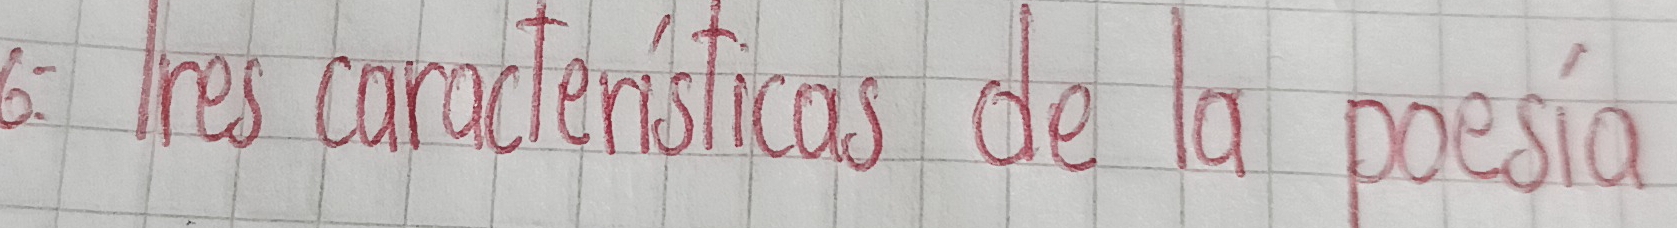 6.- Tres características de la poesía